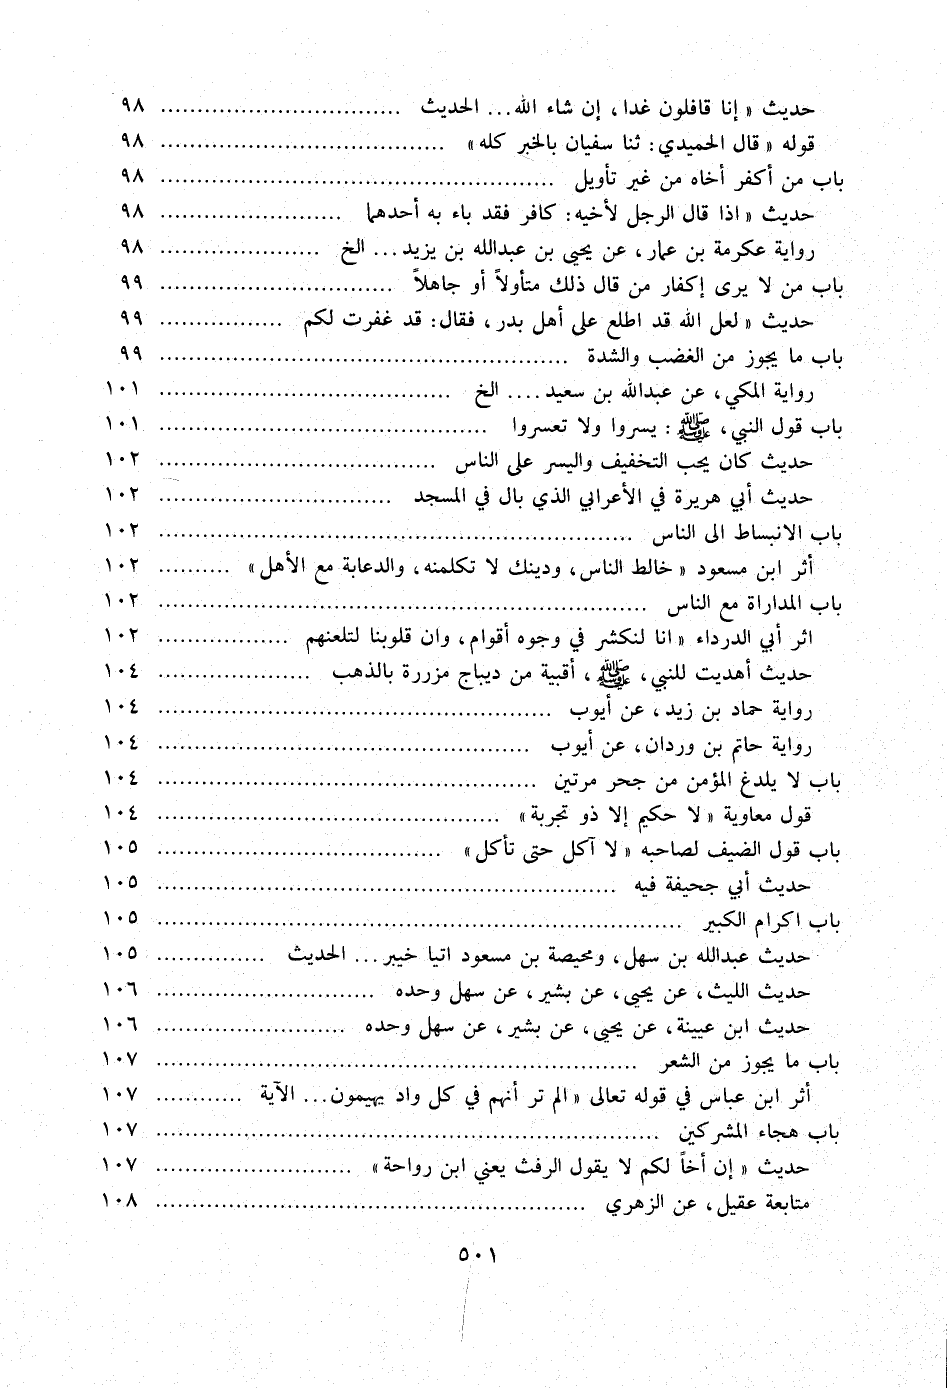 حديث « إنا قافلون غدا ، إن شاء الله ... الحديث .................... ٩٨
قوله « قال الحميدي : ثنا سفيان بالخبر كله » .................... ٩٨
باب من أكفر أخاه من غير تأويل .................... ٩٨
حديث « اذا قال الرجل لأخيه : كافر فقد باء به أحدهما .................... ٩٨
رواية عكرمة بن عمار ، عن يحيى بن عبدالله بن يزيد ... الخ .................... ٩٨
باب من لا يرى إكفار من قال ذلك متأولاً أو جاهلاً .................... ٩٩
حديث « لعل الله قد اطلع على أهل بدر ، فقال : قد غفرت لكم .................... ٩٩
باب ما يجوز من الغضب والشدة .................... ٩٩
رواية المكي ، عن عبدالله بن سعيد .... الخ .................... ١٠١
باب قول النبي ، ﷺ : يسروا ولا تعسروا .................... ١٠١
حديث كان يحب التخفيف واليسر على الناس .................... ١٠٢
حديث أبي هريرة في الأعرابي الذي بال في المسجد .................... ١٠٢
باب الانبساط الى الناس .................... ١٠٢
أثر ابن مسعود « خالط الناس ، ودينك لا تكلمنه ، والدعابة مع الأهل » .......... ١٠٢
باب المداراة مع الناس .................... ١٠٢
اثر أبي الدرداء « انا لنكشر في وجوه أقوام ، وان قلوبنا لتلعنهم .................... ١٠٢
حديث أهديت للنبي ، ﷺ ، أقبية من ديباج مزررة بالذهب .................... ١٠٤
رواية حماد بن زيد ، عن أيوب .................... ١٠٤
رواية حاتم بن وردان ، عن أيوب .................... ١٠٤
باب لا يلدغ المؤمن من جحر مرتين .................... ١٠٤
قول معاوية « لا حكيم إلا ذو تجربة » .................... ١٠٤
باب قول الضيف لصاحبه « لا آكل حتى تأكل » .................... ١٠٥
حديث أبي جحيفة فيه .................... ١٠٥
باب اكرام الكبير .................... ١٠٥
حديث عبدالله بن سهل ، ومحيصة بن مسعود اتيا خيبر ... الحديث .................... ١٠٥
حديث الليث ، عن يحيى ، عن بشير ، عن سهل وحده .................... ١٠٦
حديث ابن عيينة ، عن يحيى ، عن بشير ، عن سهل وحده .................... ١٠٦
باب ما يجوز من الشعر .................... ١٠٧
أثر ابن عباس في قوله تعالى « الم تر أنهم في كل واد يهيمون ... الآية ............ ١٠٧
باب هجاء المشركين .................... ١٠٧
حديث « إن أخاً لكم لا يقول الرفث يعني ابن رواحة » .................... ١٠٧
متابعة عقيل ، عن الزهري .................... ١٠٨
٥٠١